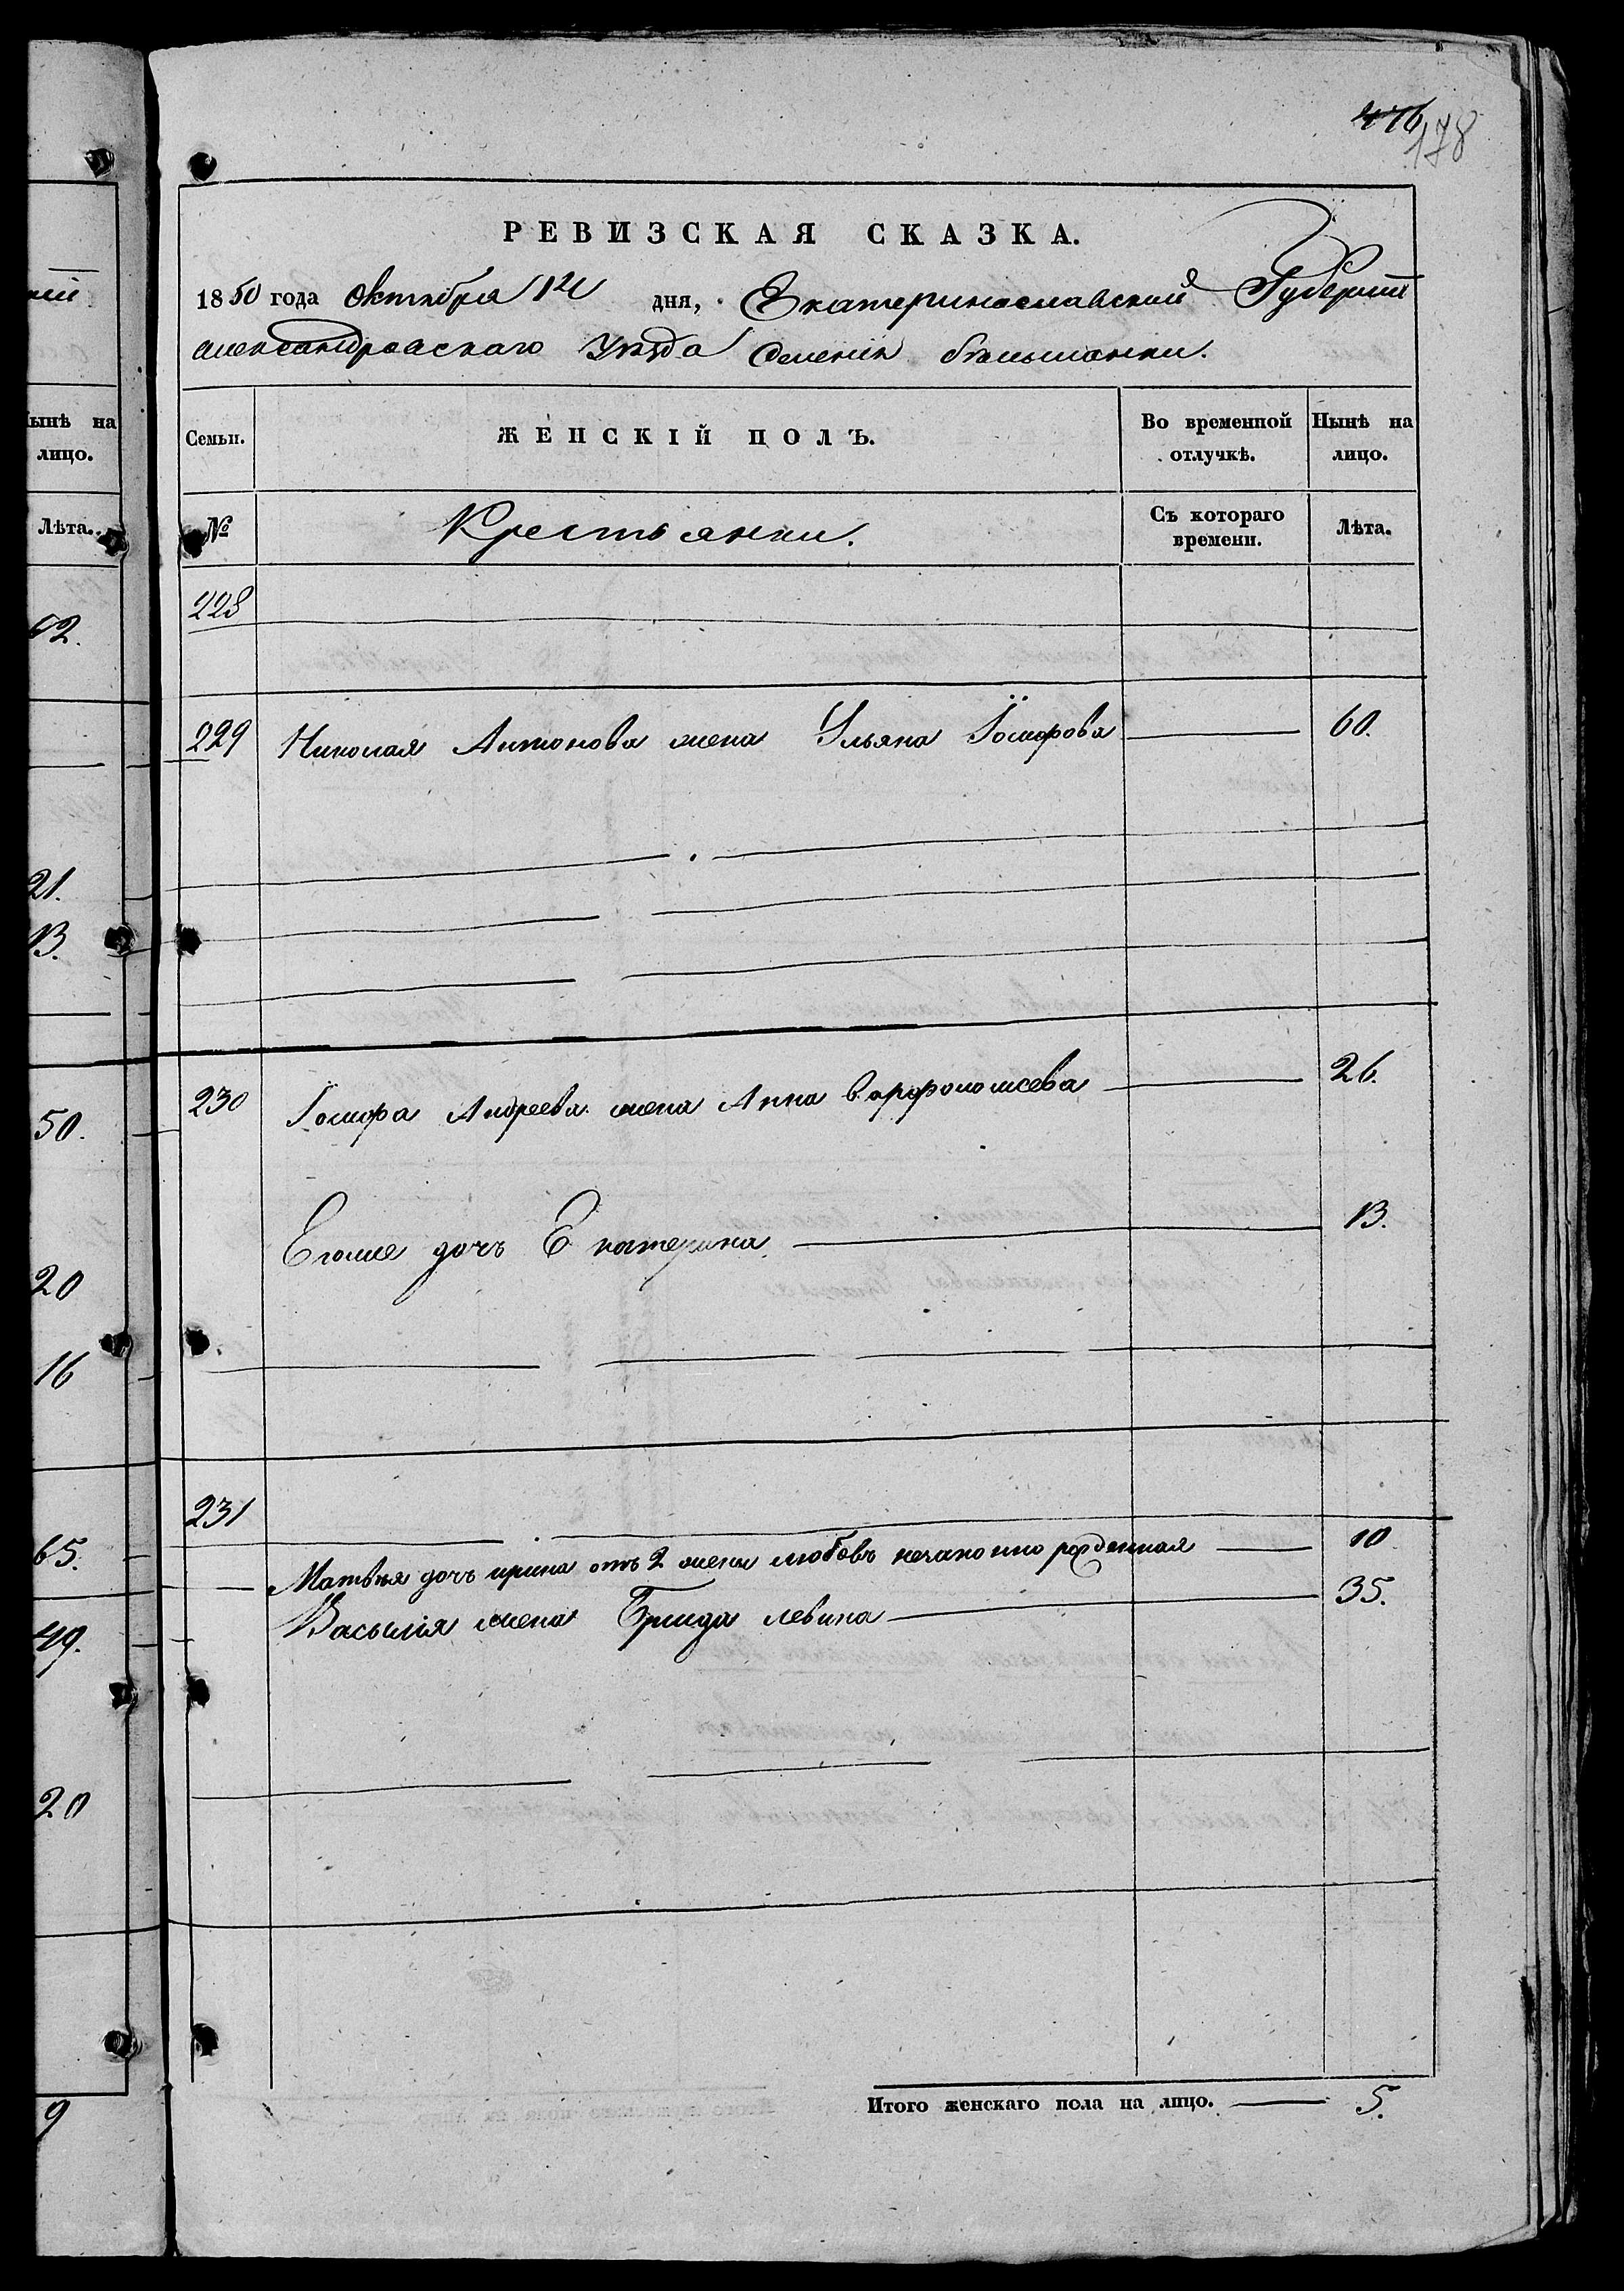 ній
Нынѣ на
лицо.
Лѣта.
62.
21.
13.
50.
20
16
65.
49.
20
9
476
178
РЕВИЗСКАЯ СКАЗКА.
1850 года Октября 12 дня, Екатеринославской Губерніи
Александровскаго Уѣзда Селенія Бѣшъ
Семьи. ЖЕНСКІЙ ПОЛЪ. Во временной отлучкѣ. Нынѣ на лицо.
№ Крестьянки. Съ котораго времени. Лѣта.
228
229 Николая Антонова жена Ульяна Іосифова 60.
230 Іосифа Андреева жена Анна Варфоломеева 26.
Егоже дочь Екатерина 13.
231
Матвѣя дочь ирина отъ 2 жены любовь незаконно рожденная 10
Василія жена левина 35.
Итого женскаго пола на лицо. 5.